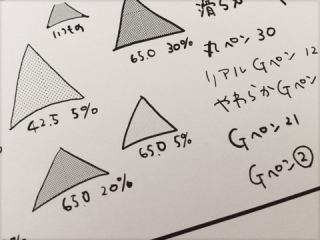 いつもの
65.0 30%
42.5 5%
65.0 5%
65.0 20%
丸ペン 30
リアルGペン 12
やわらかGペン
Gペン 21
Gペン ②